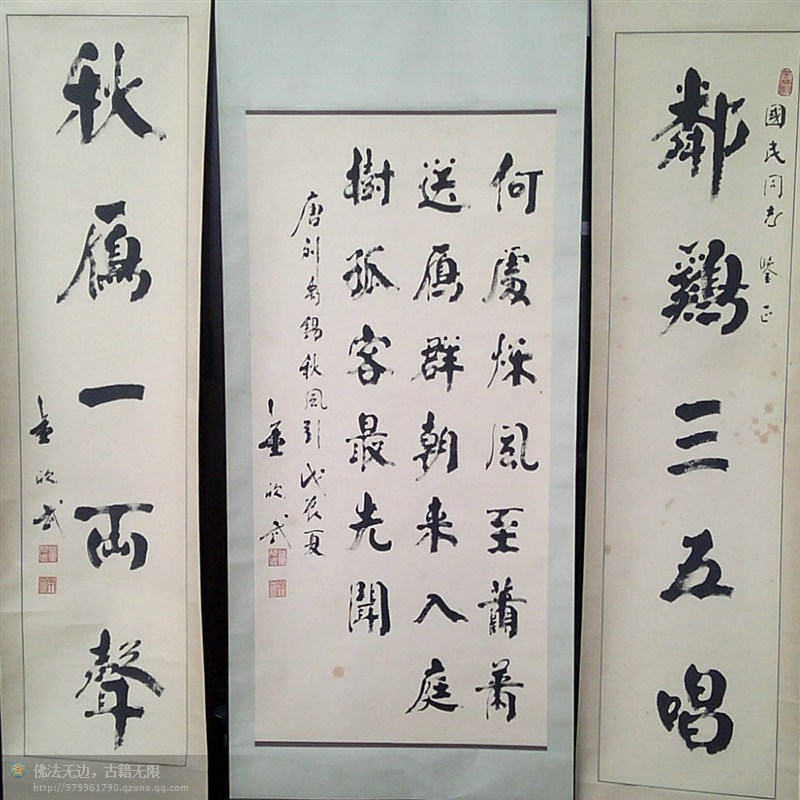 國民同志 鑒正
鄰鷄三五唱
何處秌風至蕭蕭
送鴈群朝來入庭
樹孤客最先聞
唐刘禹錫秋風引 戊辰夏
董欣武
秋鴈一両聲
董欣武
佛法无边，古籍无限
http://979961790.qzone.qq.com